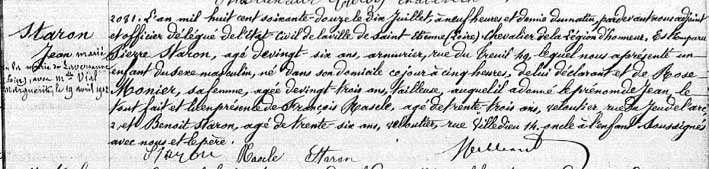 Staron
Jean marié
Vial
Marguerite, le 19 avril 1912
2091. L'an mil huit cent soixante-douze le dix Juillet, à neuf heures et demie du matin, par devant nous adjoint
et officier délégué de l'Etat civil de la ville de Saint Etienne (Loire) Chevalier de la Légion d'honneur, Est comparu
Pierre Staron, agé de vingt-six ans, armurier, rue du Treuil 49, lequel nous a présenté un
enfant du sexe masculin, né dans son domicile ce jour à cinq heures, de lui déclarant et de Rose
Monier, sa femme, agée de vingt-trois ans, tailleuse, auquel il a donné le prénom de Jean, le
tout fait et lu en présence de François Masele, agé de trente trois ans, veloutier, rue du Jeu de l'arc
2, et Benoit Staron, agé de trente-six ans, veloutier, rue Villedieu 14, oncle à l'enfant Soussignés
avec nous et le père.
Staron Masele Staron